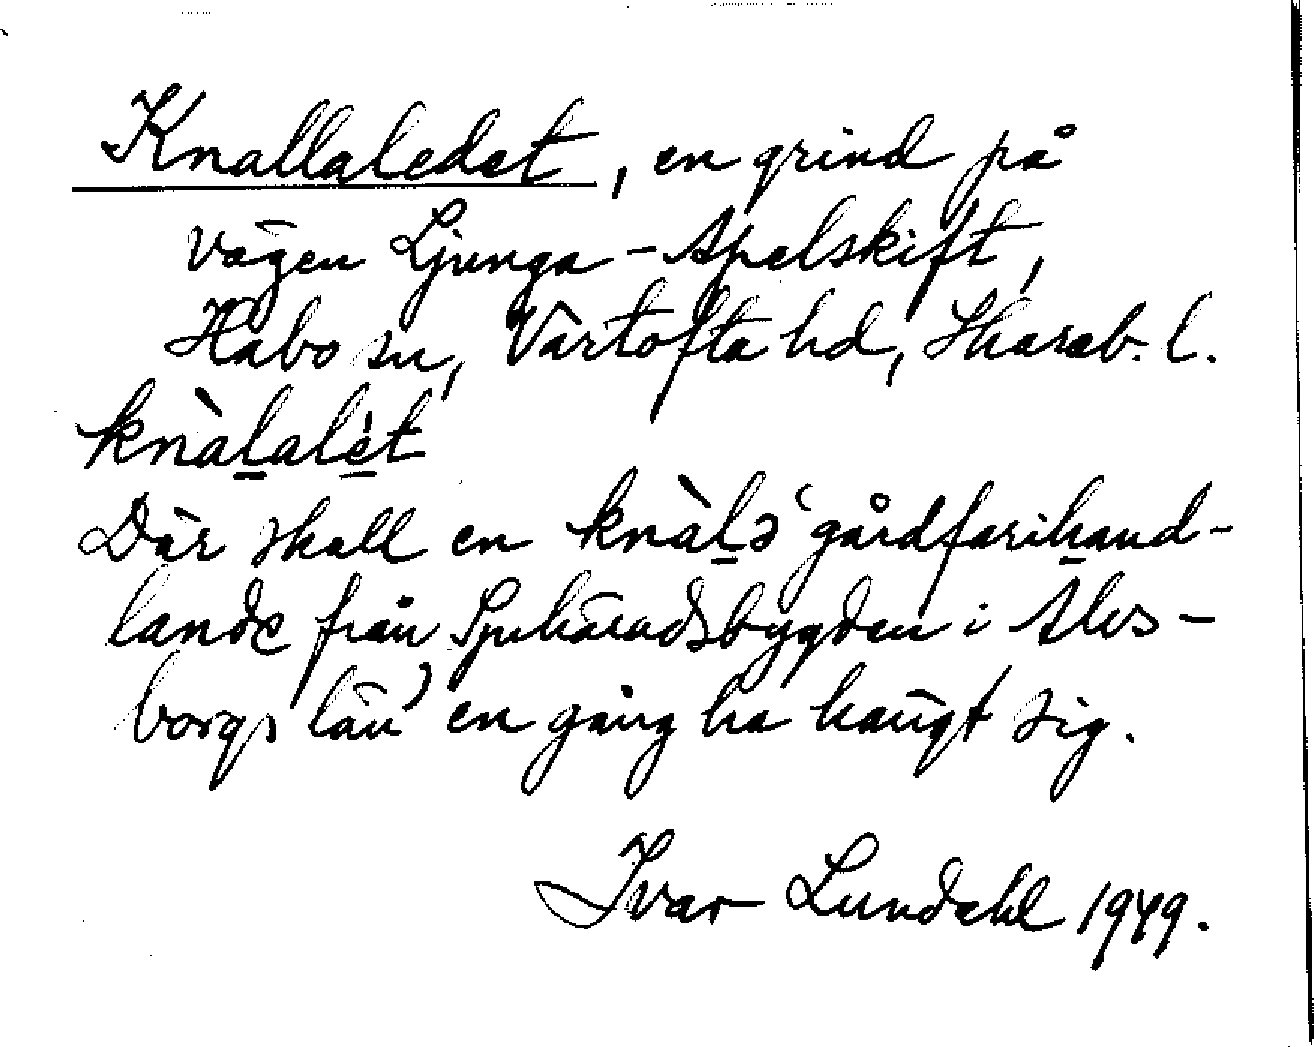 Knallaledet, en grind på
vägen Ljunga - Apelskift,
Habo sn, Vartofta hd, Skarab. l.
knàlalét
Där skall en knàlə ‘gårdfarihand-
lande från Sjuhäradsbygden i Älvs-
borgs län’ en gång ha hängt sig.
Ivar Lundahl 1949.